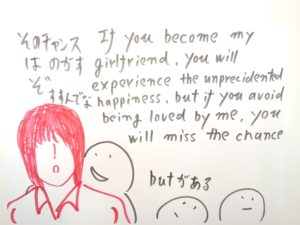 そのチャンス
は のがす
ぞ
すすんでな
If you become my
girlfriend, you will
experience the unprecidented
happiness, but if you avoid
being loved by me, you
will miss the chance
butがある